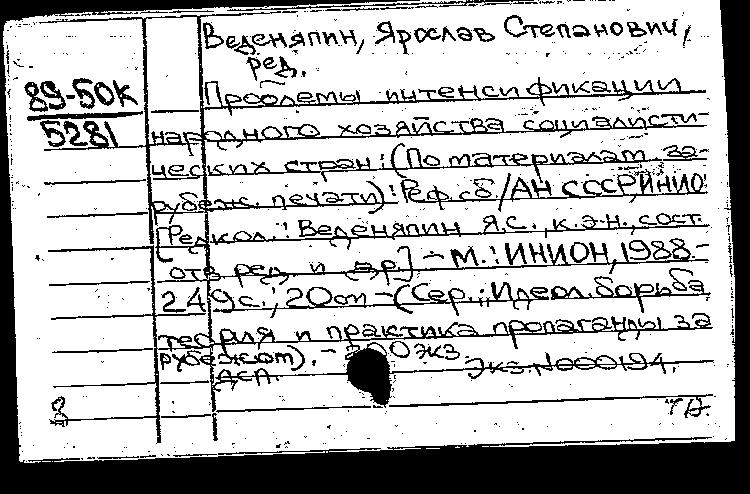 Веденяпин, Ярослав Степанович,
ред.
89-50К
5281
Проблемы интенсификации
народного хозяйства социалисти-
ческих стран: (По материалам за-
рубеж. печати): Реф. сб / АН СССР, ИНИО
[Редкол.: Веденяпин Я.С., к.э.н., сост.
отв. ред. и др.] - М.: ИНИОН, 1988-
249 с.; 20 см - (Сер.: Идеол. борьба,
теория и практика пропаганды за
рубежом). - 300 экз.
ДСП. Экз. N 000194.